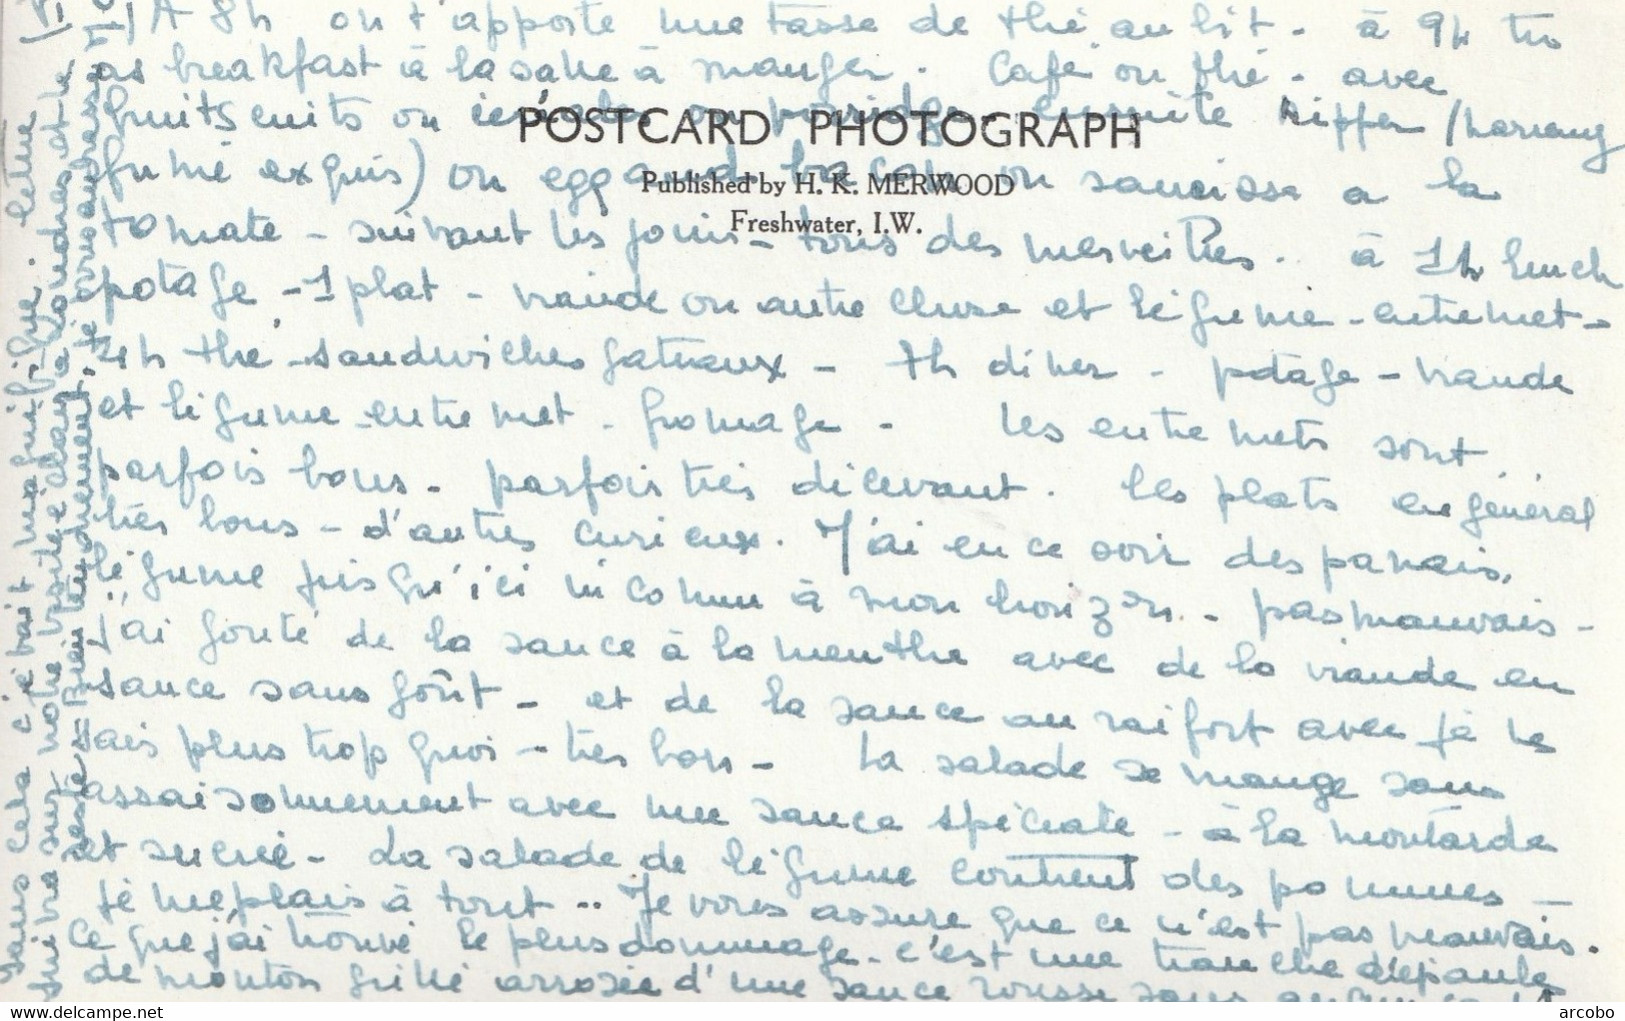 A 8h on t'apporte une tasse de thé au lit - à 9h tu
as breakfast à la salle à manger. Café ou thé - avec
fruits cuits ou ou porridge - ensuite kipper (hareng
fumé exquis) ou egg and bacon ou saucisse a la
tomate - suivant les jours - tous des merveilles. à 1h lunch
potage - 1 plat - viande ou autre chose et légume - entremet -
4h thé - sandwiches gateaux - 7h diner - potage - viande
et légume - entremet - fromage - les entremets sont
parfois bons - parfois très décevant. les plats en général
très bons - d'autres curieux. J'ai eu ce soir des panais,
légume jusqu'ici inconnu à mon horizon - pas mauvais -
j'ai gouté de la sauce à la menthe avec de la viande en
sauce sans goût - et de la sauce au raifort avec je ne
sais plus trop quoi - très bon - La salade se mange sans
assaisonnement avec une sauce spéciale - à la moutarde
et sucrée - La salade de légume contient des pommes -
je me plais à tout .. Je vous assure que ce n'est pas mauvais.
Ce que j'ai trouvé le plus dommage - c'est une tranche d'épaule
de mouton grillé arrosée d'une sauce rousse sans
POSTCARD PHOTOGRAPH
Published by H. K. MERWOOD
Freshwater, I.W.
sans cela c'était magnifique. lettre
suivra sur notre visite éclair à Londres et le
reste - Bien tendrement, te
delcampe.net
arcobo